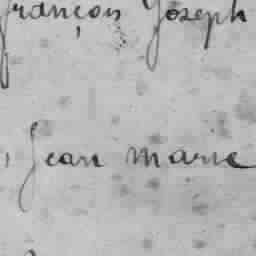 françois Joseph
, Jean Marie